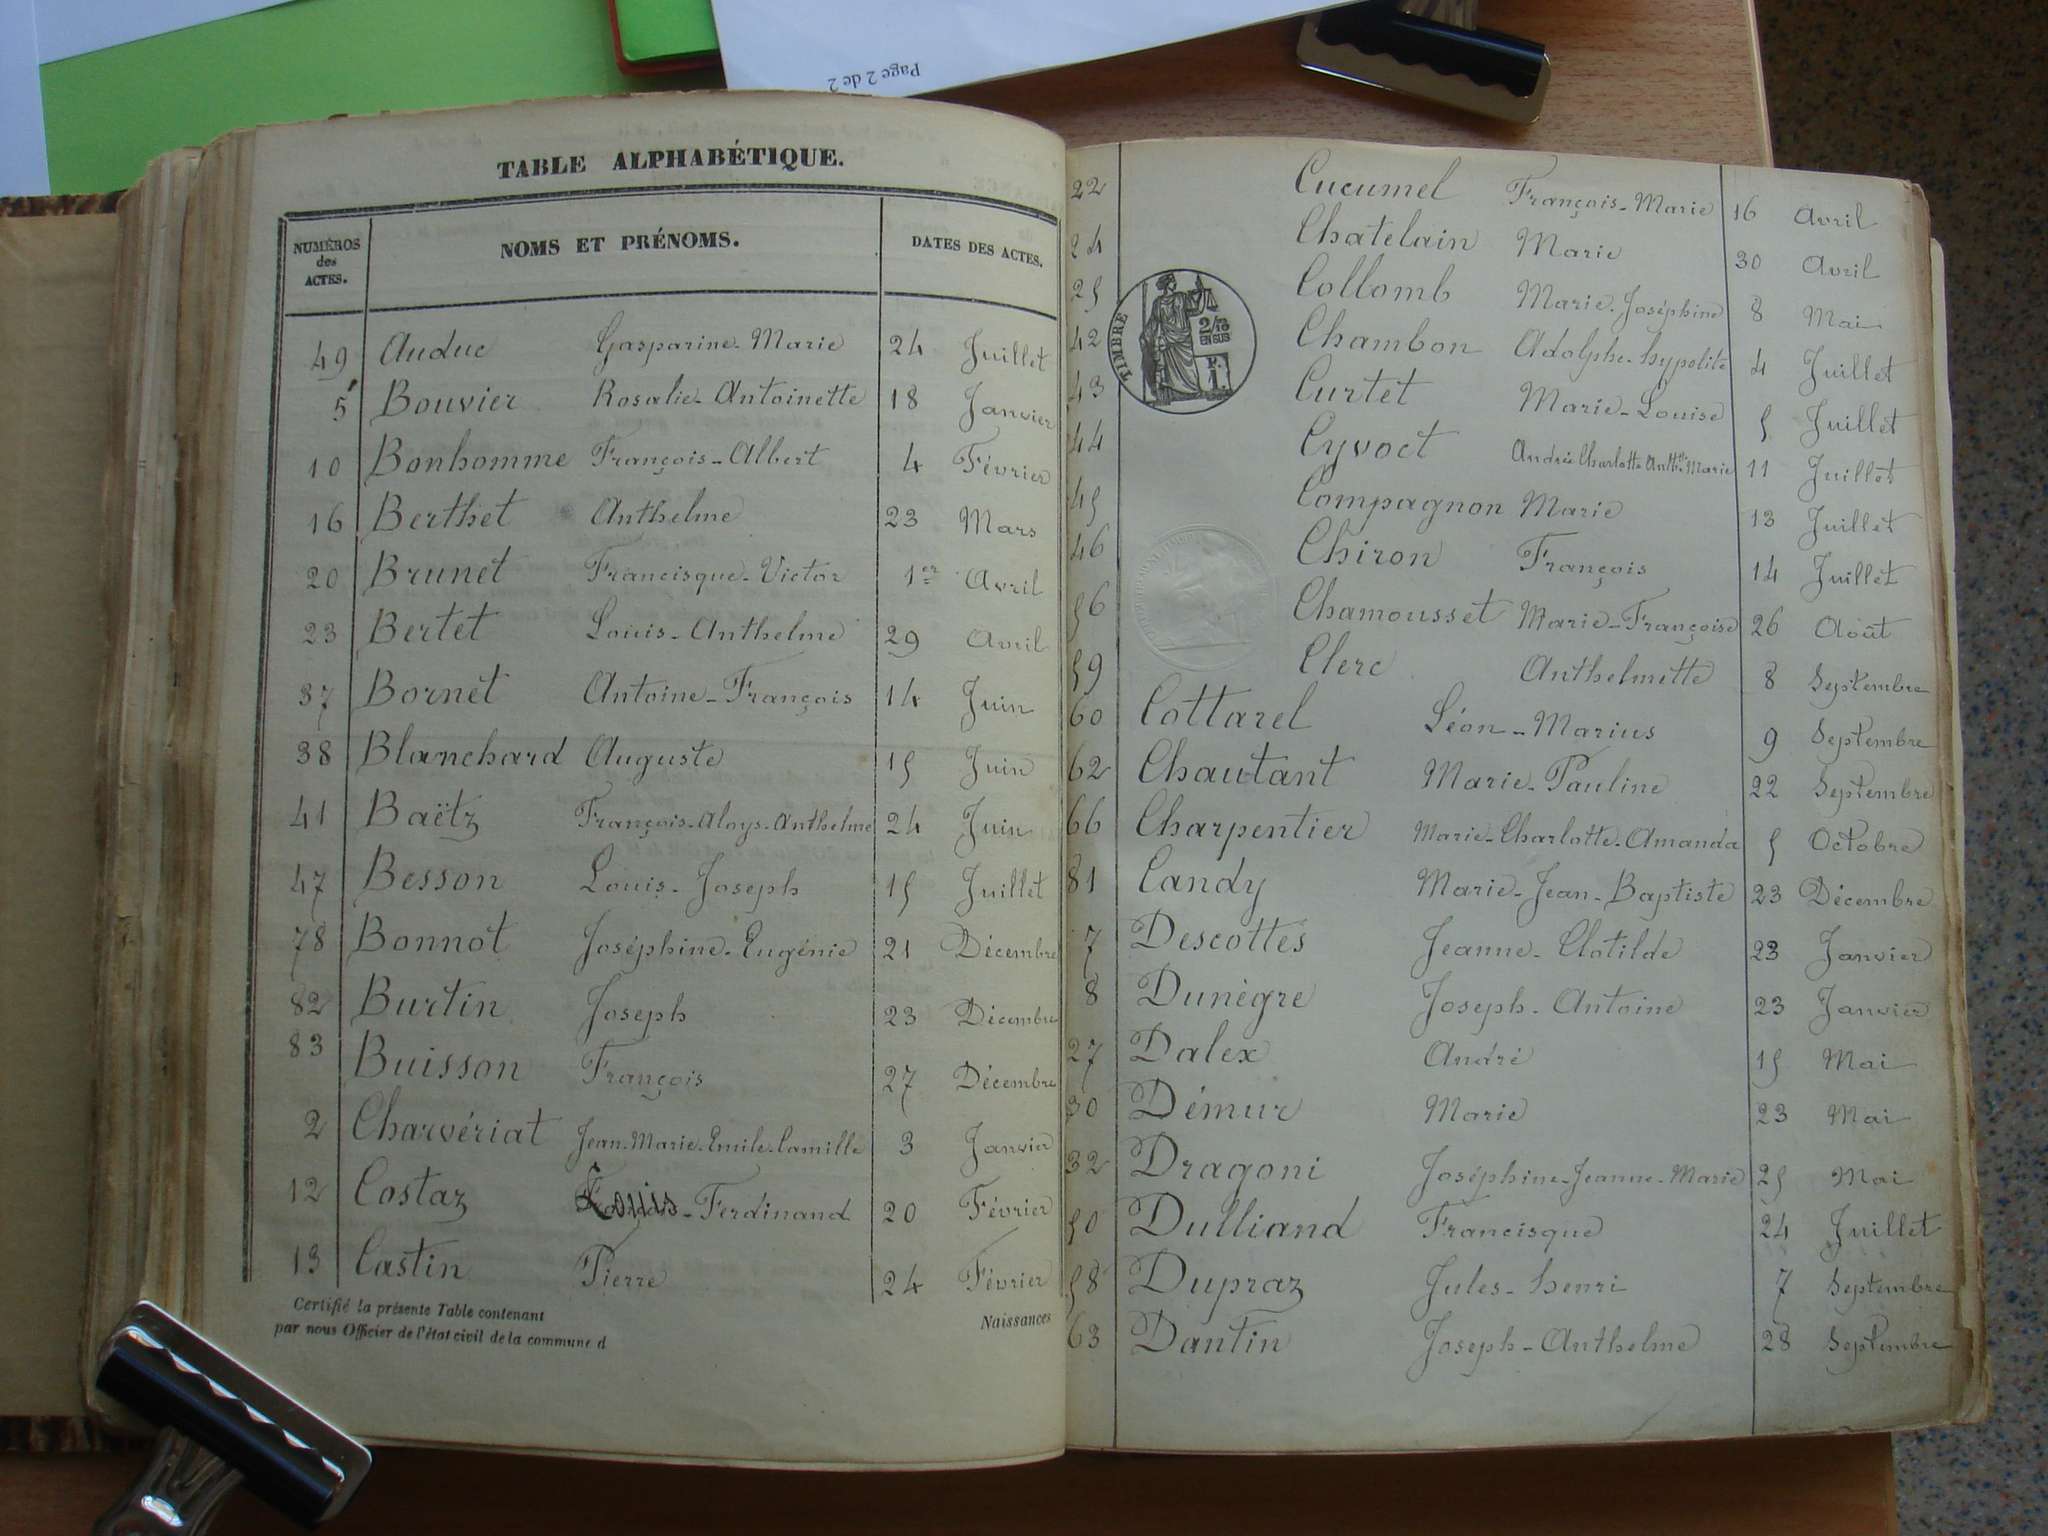 Page 2 de 2
TABLE ALPHABÉTIQUE.
NUMÉROS des ACTES. NOMS ET PRÉNOMS. DATES DES ACTES.
49 Auduc Gasparine-Marie 24 Juillet
5 Bouvier Rosalie-Antoinette 18 Janvier
10 Bonhomme François-Albert 4 Février
16 Berthet Anthelme 23 Mars
20 Brunet Francisque-Victor 1er Avril
23 Bertet Louis-Anthelme 29 Avril
37 Bornet Antoine-François 14 Juin
38 Blanchard Auguste 15 Juin
41 Baëtz François-Aloys-Anthelme 24 Juin
47 Besson Louis-Joseph 15 Juillet
78 Bonnot Joséphine-Eugénie 21 Décembre
82 Burtin Joseph 23 Décembre
83 Buisson François 27 Décembre
2 Charvériat Jean-Marie-Emile-Camille 3 Janvier
12 Costaz Louis-Ferdinand 20 Février
13 Castin Pierre 24 Février
Certifié la présente Table contenant Naissances
par nous Officier de l'état civil de la commune d
22 Cucumel François-Marie 16 Avril
24 Chatelain Marie 30 Avril
25 Collomb Marie-Joséphine 8 Mai
42 Chambon Adolphe-hypolite 4 Juillet
43 Curtet Marie-Louise 5 Juillet
44 Cyvoct Andrée Charlotte Anthe Marie 11 Juillet
45 Compagnon Marie 13 Juillet
46 Chiron François 14 Juillet
56 Chamousset Marie-Françoise 26 Août
59 Clerc Anthelmette 8 Septembre
60 Cottarel Léon-Marius 9 Septembre
62 Chautant Marie-Pauline 22 Septembre
66 Charpentier Marie-Charlotte-Amanda 5 Octobre
81 Candy Marie-Jean-Baptiste 23 Décembre
7 Descottes Jeanne-Clotilde 23 Janvier
8 Dunègre Joseph-Antoine 23 Janvier
27 Dalex André 15 Mai
30 Démur Marie 23 Mai
32 Dragoni Joséphine-Jeanne-Marie 25 Mai
50 Dulliand Francisque 24 Juillet
58 Dupraz Jules-henri 7 Septembre
63 Dantin Joseph-Anthelme 28 Septembre
TIMBRE
2/10
EN SUS
F.
1.